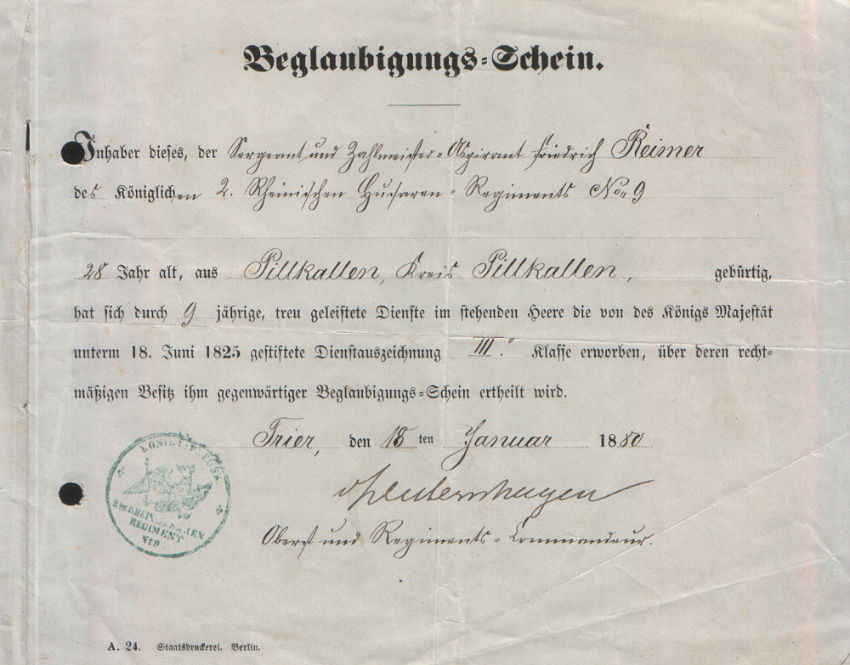 Beglaubigungs-Schein.
Inhaber dieses, der Sergeant und Zahlmeister-Aspirant Friedrich Reimer
des Königlichen 2. Rheinischen Husaren-Regiments No. 9
28 Jahr alt, aus Pillkallen, Kreis Pillkallen, gebürtig,
hat sich durch 9 jährige, treu geleistete Dienste im stehenden Heere die von des Königs Majestät
unterm 18. Juni 1825 gestiftete Dienstauszeichnung III. Klasse erworben, über deren recht-
mäßigen Besitz ihm gegenwärtiger Beglaubigungs-Schein ertheilt wird.
Trier, den 18 ten Januar 1880
Oberst und Regiments-Commandeur.
KÖNIGL. PREUSS.
2TES RHEIN. HUSAREN
REGIMENT
No 9
A. 24. Staatsdruckerei. Berlin.